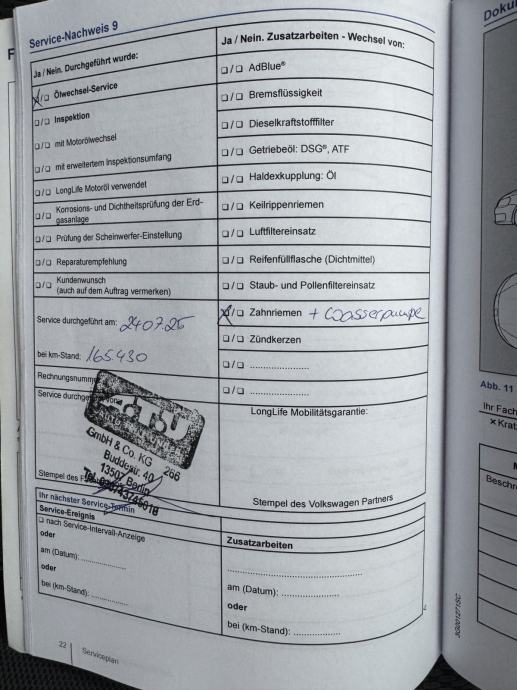 Service-Nachweis 9
Ja / Nein. Durchgeführt wurde:
☒/❑ Ölwechsel-Service
❑/❑ Inspektion
❑/❑ mit Motorölwechsel
❑/❑ mit erweitertem Inspektionsumfang
❑/❑ LongLife Motoröl verwendet
❑/❑ Korrosions- und Dichtheitsprüfung der Erd-
gasanlage
❑/❑ Prüfung der Scheinwerfer-Einstellung
❑/❑ Reparaturempfehlung
❑/❑ Kundenwunsch
(auch auf dem Auftrag vermerken)
Service durchgeführt am: 240725
bei km-Stand: 165430
Rechnungsnumm
Service durchge
GmbH & Co. KG
266
Buddestr. 40
13507 Berlin
Stempel des F
Ja / Nein. Zusatzarbeiten - Wechsel von:
❑/❑ AdBlue®
❑/❑ Bremsflüssigkeit
❑/❑ Dieselkraftstofffilter
❑/❑ Getriebeöl: DSG®, ATF
❑/❑ Haldexkupplung: Öl
❑/❑ Keilrippenriemen
❑/❑ Luftfiltereinsatz
❑/❑ Reifenfüllflasche (Dichtmittel)
❑/❑ Staub- und Pollenfiltereinsatz
☒/❑ Zahnriemen + Wasserpumpe
❑/❑ Zündkerzen
❑/❑ .....................
❑/❑ .....................
LongLife Mobilitätsgarantie:
Stempel des Volkswagen Partners
Ihr nächster Service-Termin
Service-Ereignis
❑ nach Service-Intervall-Anzeige
oder
am (Datum): ................
oder
bei (km-Stand): .............
Zusatzarbeiten
................................................
am (Datum): .....................
oder
bei (km-Stand): .................
22
Serviceplan
Doku
Abb. 11
Ihr Fach
× Krat
Beschre
3G0012715C